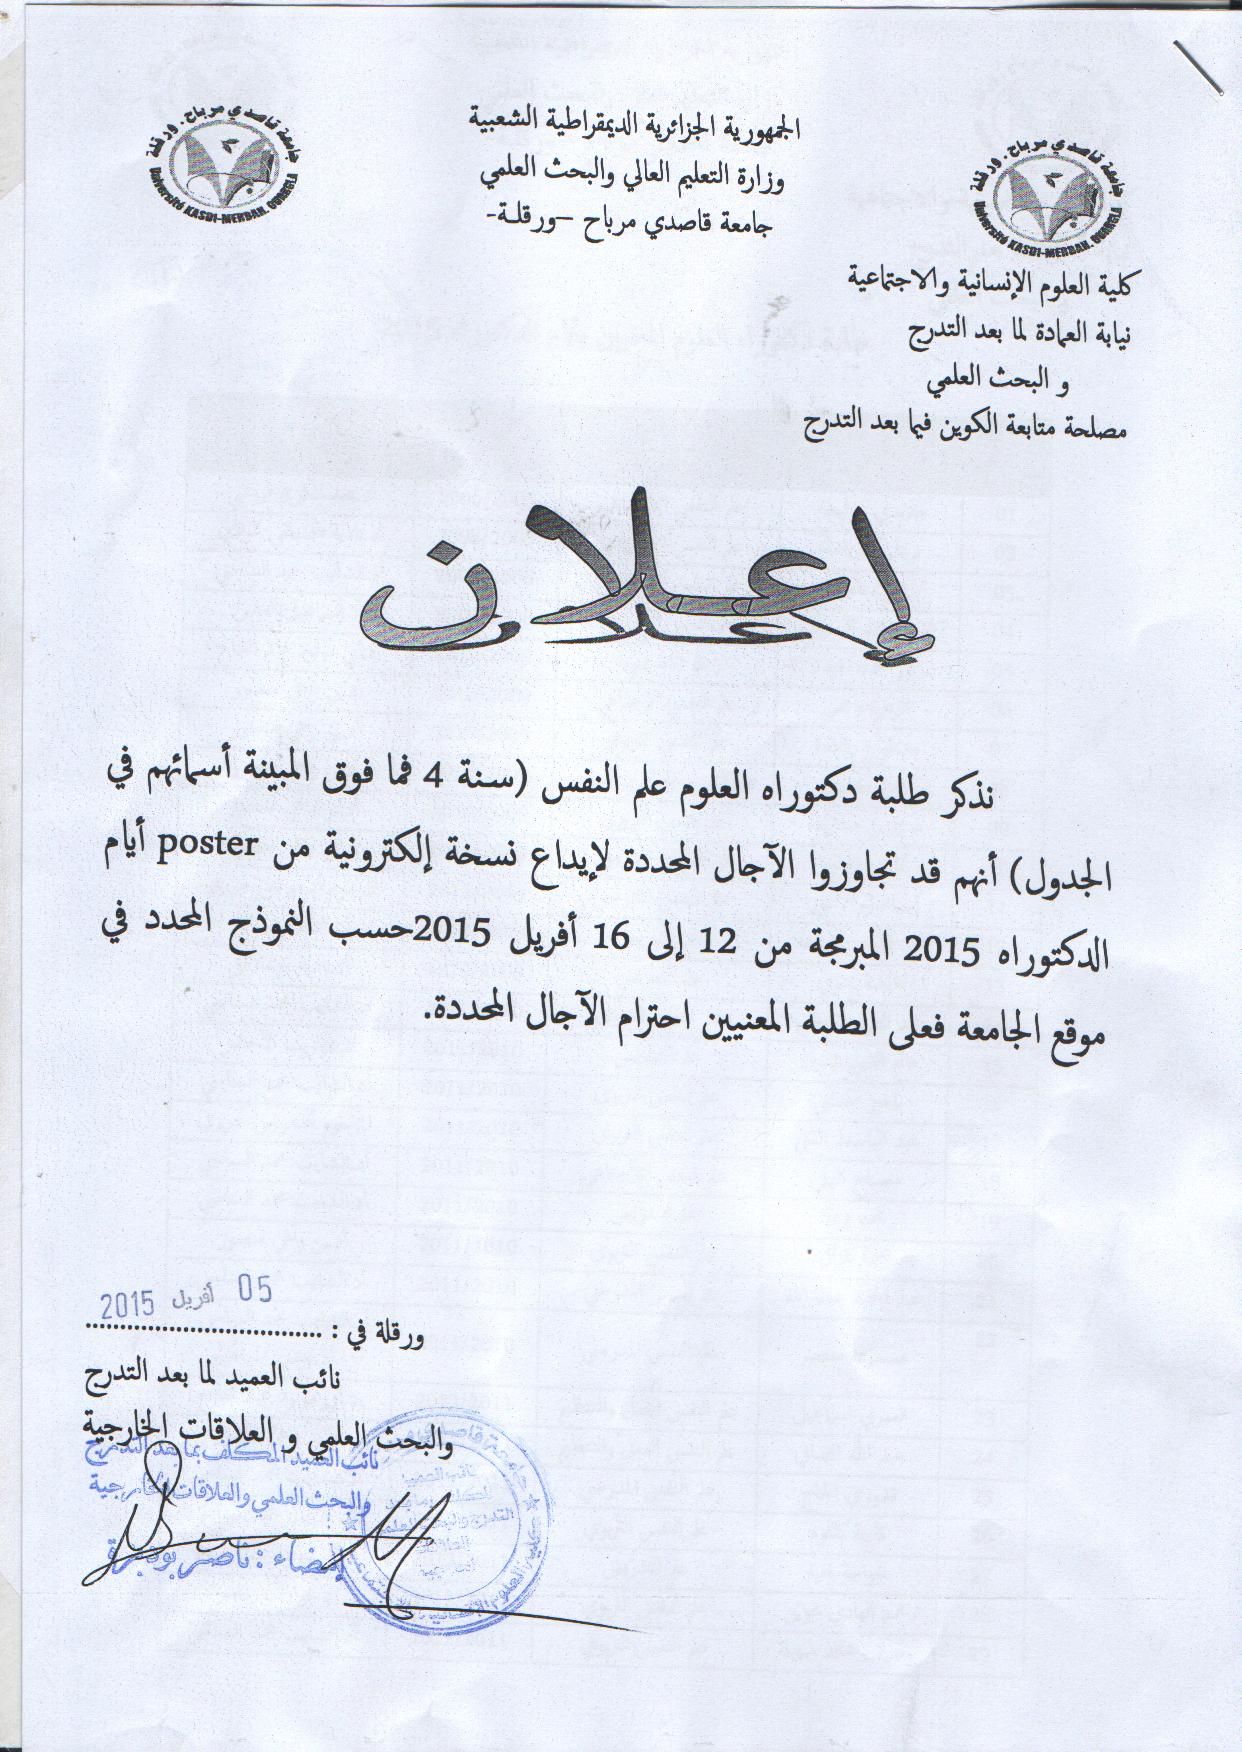 الجمهورية الجزائرية الديمقراطية الشعبية
وزارة التعليم العالي والبحث العلمي
جامعة قاصدي مرباح –ورقلـة-
جامعة قاصدي مرباح . ورقلة
Université KASDI-MERBAH. OUARGLA
جامعة قاصدي مرباح . ورقلة
Université KASDI-MERBAH. OUARGLA
كلية العلوم الإنسانية والاجتماعية
نيابة العمادة لما بعد التدرج
و البحث العلمي
مصلحة متابعة الكوين فيما بعد التدرج
إعـلان
نذكر طلبة دكتوراه العلوم علم النفس (سـنة 4 فما فوق المبينة أسمائهم في
الجدول) أنهم قد تجاوزوا الآجال المحددة لإيداع نسخة إلكترونية من poster أيام
الدكتوراه 2015 المبرمجة من 12 إلى 16 أفريل 2015حسب النموذج المحدد في
موقع الجامعة فعلى الطلبة المعنيين احترام الآجال المحددة.
05 أفريل 2015
ورقلة في : ..................................
نائب العميد لما بعد التدرج
والبحث العلمي و العلاقات الخارجية
نائب العميد المكلف بما بعد التدرج
والبحث العلمي والعلاقات الخارجية
إمضاء : ناصر